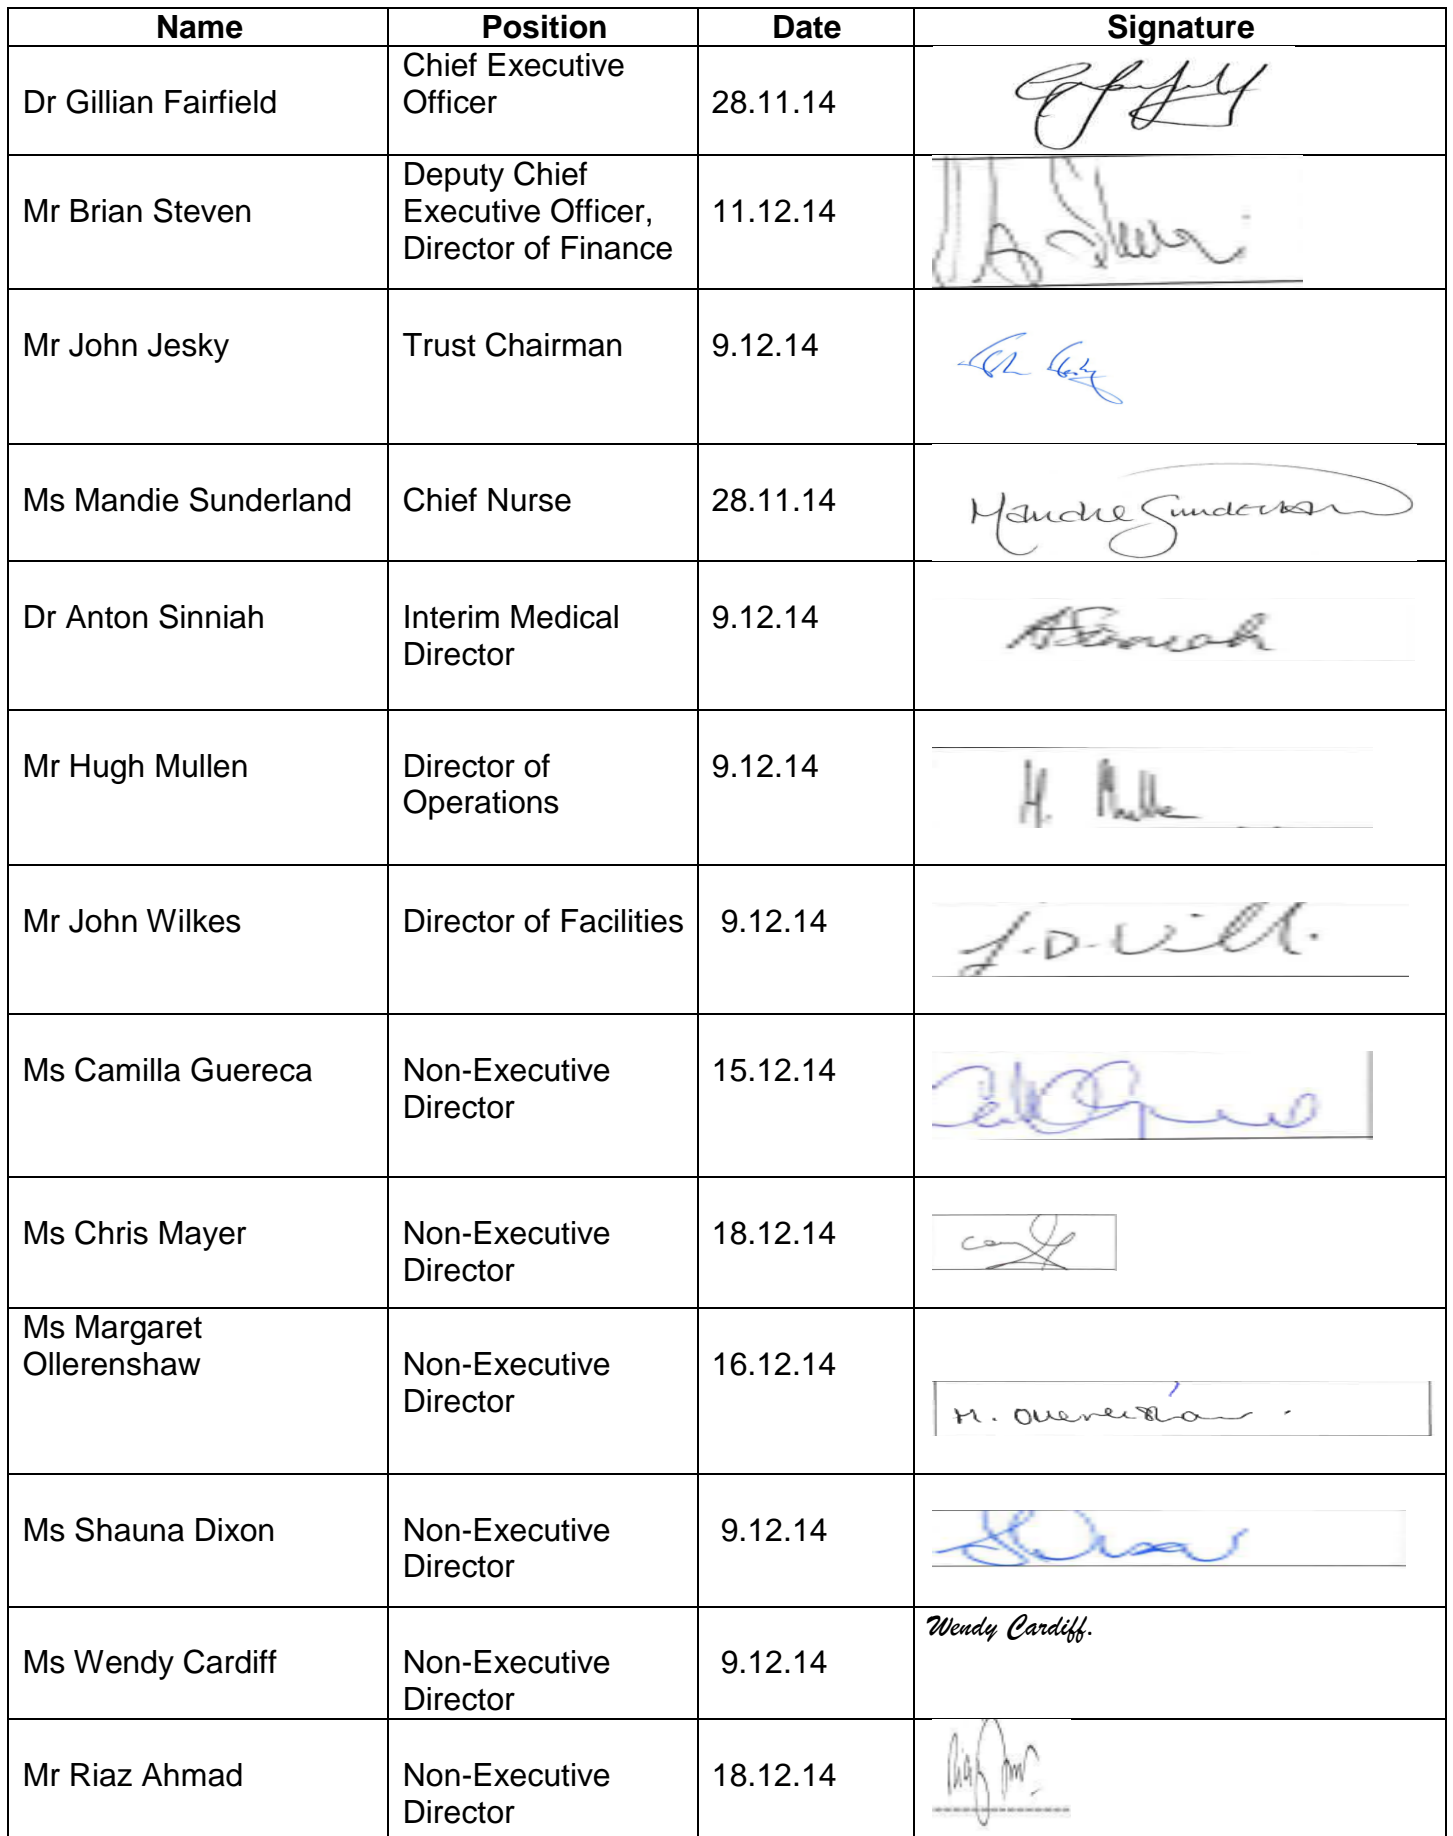 Name Position Date Signature
Dr Gillian Fairfield Chief Executive
Officer 28.11.14
Mr Brian Steven Deputy Chief
Executive Officer,
Director of Finance 11.12.14
Mr John Jesky Trust Chairman 9.12.14
Ms Mandie Sunderland Chief Nurse 28.11.14 Mandie Sunderland
Dr Anton Sinniah Interim Medical
Director 9.12.14 A Sinniah
Mr Hugh Mullen Director of
Operations 9.12.14 H. Mullen
Mr John Wilkes Director of Facilities 9.12.14
Ms Camilla Guereca Non-Executive
Director 15.12.14
Ms Chris Mayer Non-Executive
Director 18.12.14
Ms Margaret
Ollerenshaw Non-Executive
Director 16.12.14 M. Ollerenshaw.
Ms Shauna Dixon Non-Executive
Director 9.12.14
Ms Wendy Cardiff Non-Executive
Director 9.12.14 Wendy Cardiff.
Mr Riaz Ahmad Non-Executive
Director 18.12.14